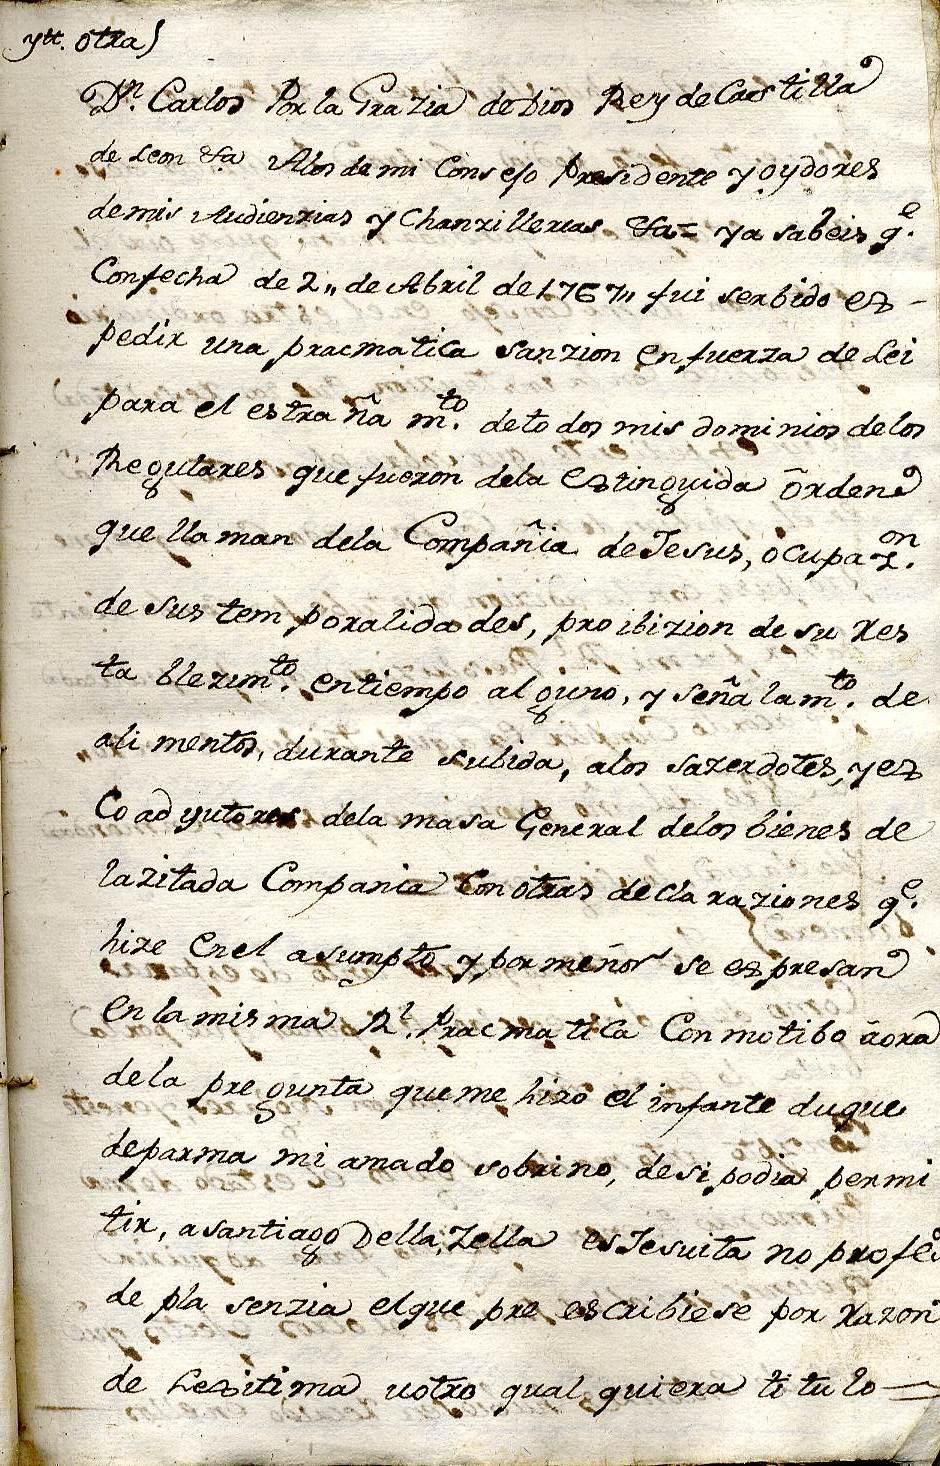 ytt. otra
Dn. Carlos Por la Grazia de Dios Rey de Castilla
de Leon &a Alos de mi Consejo Presidente y oydores
de mis Audienzias y Chanzillerias &a= ya sabeis q.e
Con fecha de 2,, de Abril de 1767,, fui serbido es-
pedir una pracmatica sanzion en fuerza de Lei
para el estraña m.to de todos mis dominios de los
Regulares que fueron dela estinguida õrden
que llaman dela Compañia de Jesus, ocupaz.on
de sus temporalidades, proibizion de su res
ta blezim.to en tiempo alguno, y señalam.to de
alimentos, durante subida, alos sazerdotes, y es
Coadyutores dela masa General delos bienes de
la zitada Compania Con otras declaraziones q.e
hize en el asumpto y por meñor se espresan
en la misma R.l Pracmatica Con motibo aora
dela pregunta que me hizo el infante duque
de parma mi amado sobrino, de si podia permi
tir, a santiago Della, Zella esJesuita no profeso
de plasenzia el que pre escribiese por razon
de Lesitima u otro qual quiera titulo